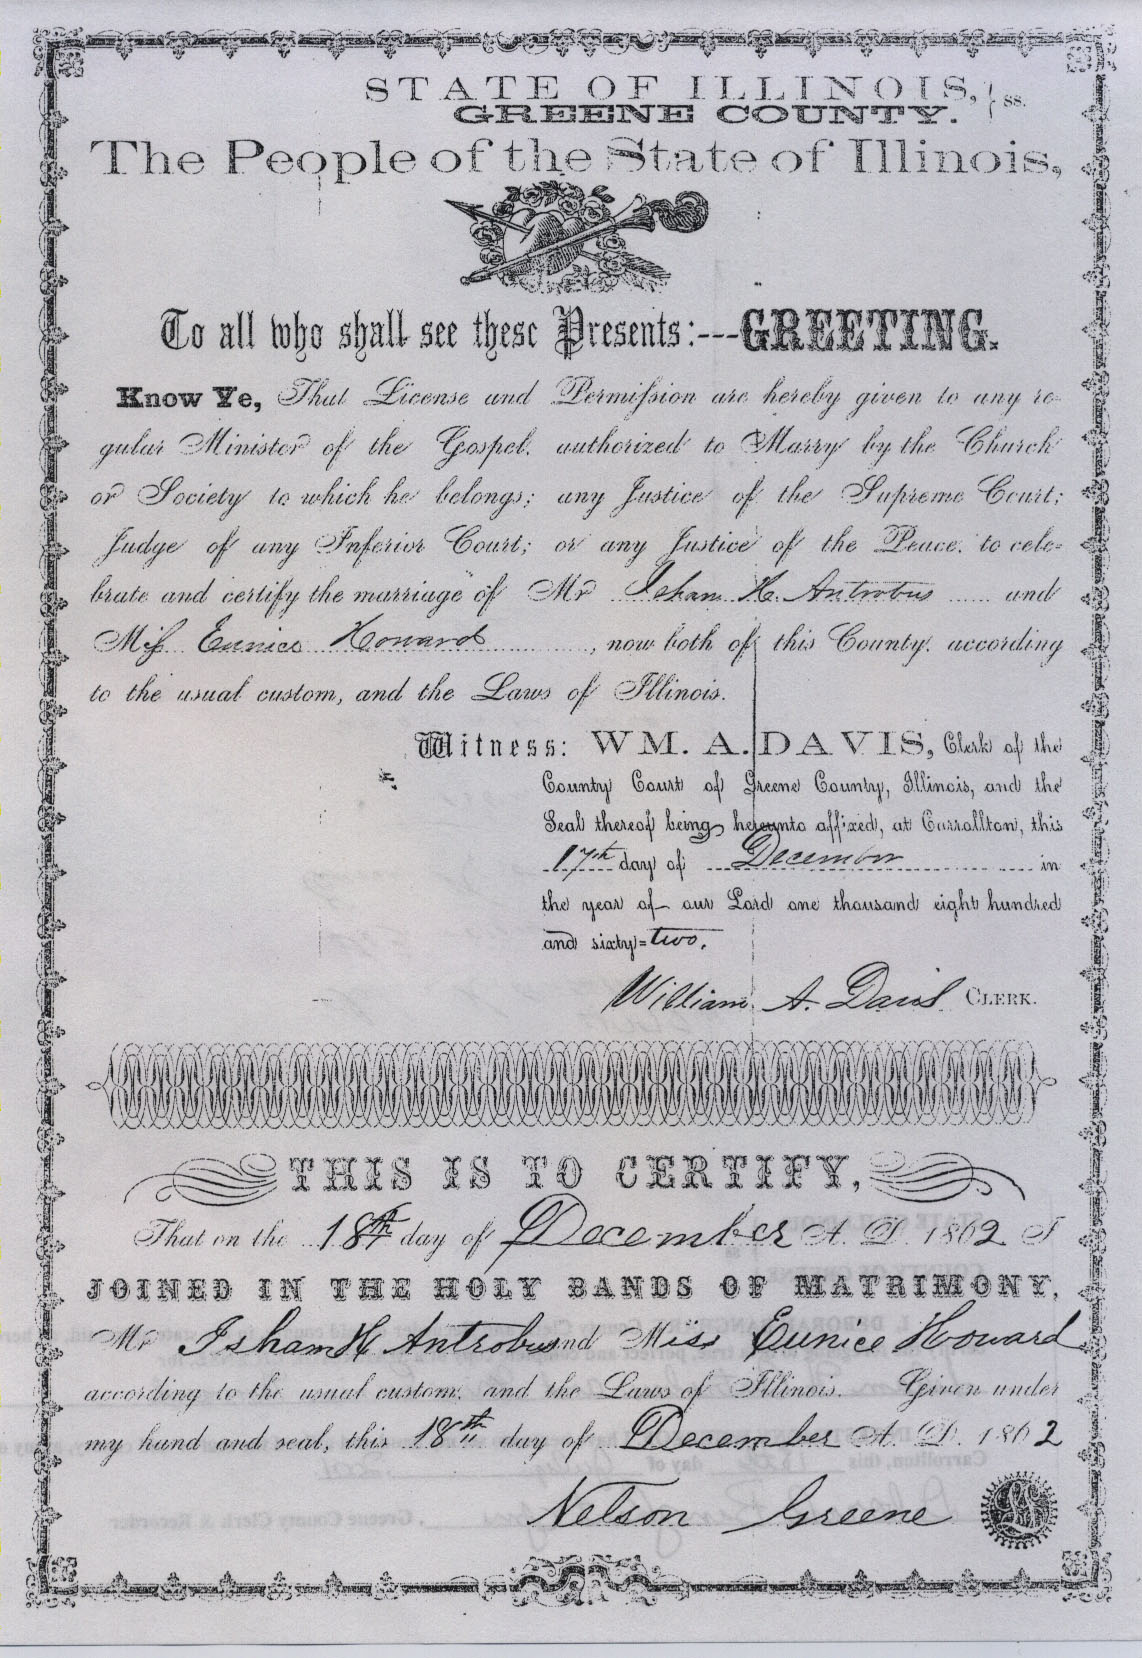 STATE OF ILLINOIS, } ss.
GREENE COUNTY.
The People of the State of Illinois,
To all who shall see these Presents:---GREETING.
Know Ye, That License and Permission are hereby given to any re-
gular Minister of the Gospel, authorized to Marry by the Church
or Society to which he belongs; any Justice of the Supreme Court;
Judge of any Inferior Court; or any Justice of the Peace, to cele-
brate and certify the marriage of Mr Isham H. Antrobus and
Miss Eunice Howard, now both of this County, according
to the usual custom, and the Laws of Illinois.
Witness: WM. A. DAVIS, Clerk of the
County Court of Greene County, Illinois, and the
Seal thereof being hereunto affixed, at Carrollton, this
17th day of December in
the year of our Lord one thousand eight hundred
and sixty=two.
William A. Davis CLERK.
THIS IS TO CERTIFY,
That on the 18th day of December A. D. 1862 I
JOINED IN THE HOLY BANDS OF MATRIMONY,
Mr Isham H Antrobus and Miss Eunice Howard
according to the usual custom, and the Laws of Illinois. Given under
my hand and seal, this 18th day of December A. D. 1862
Nelson Greene LS